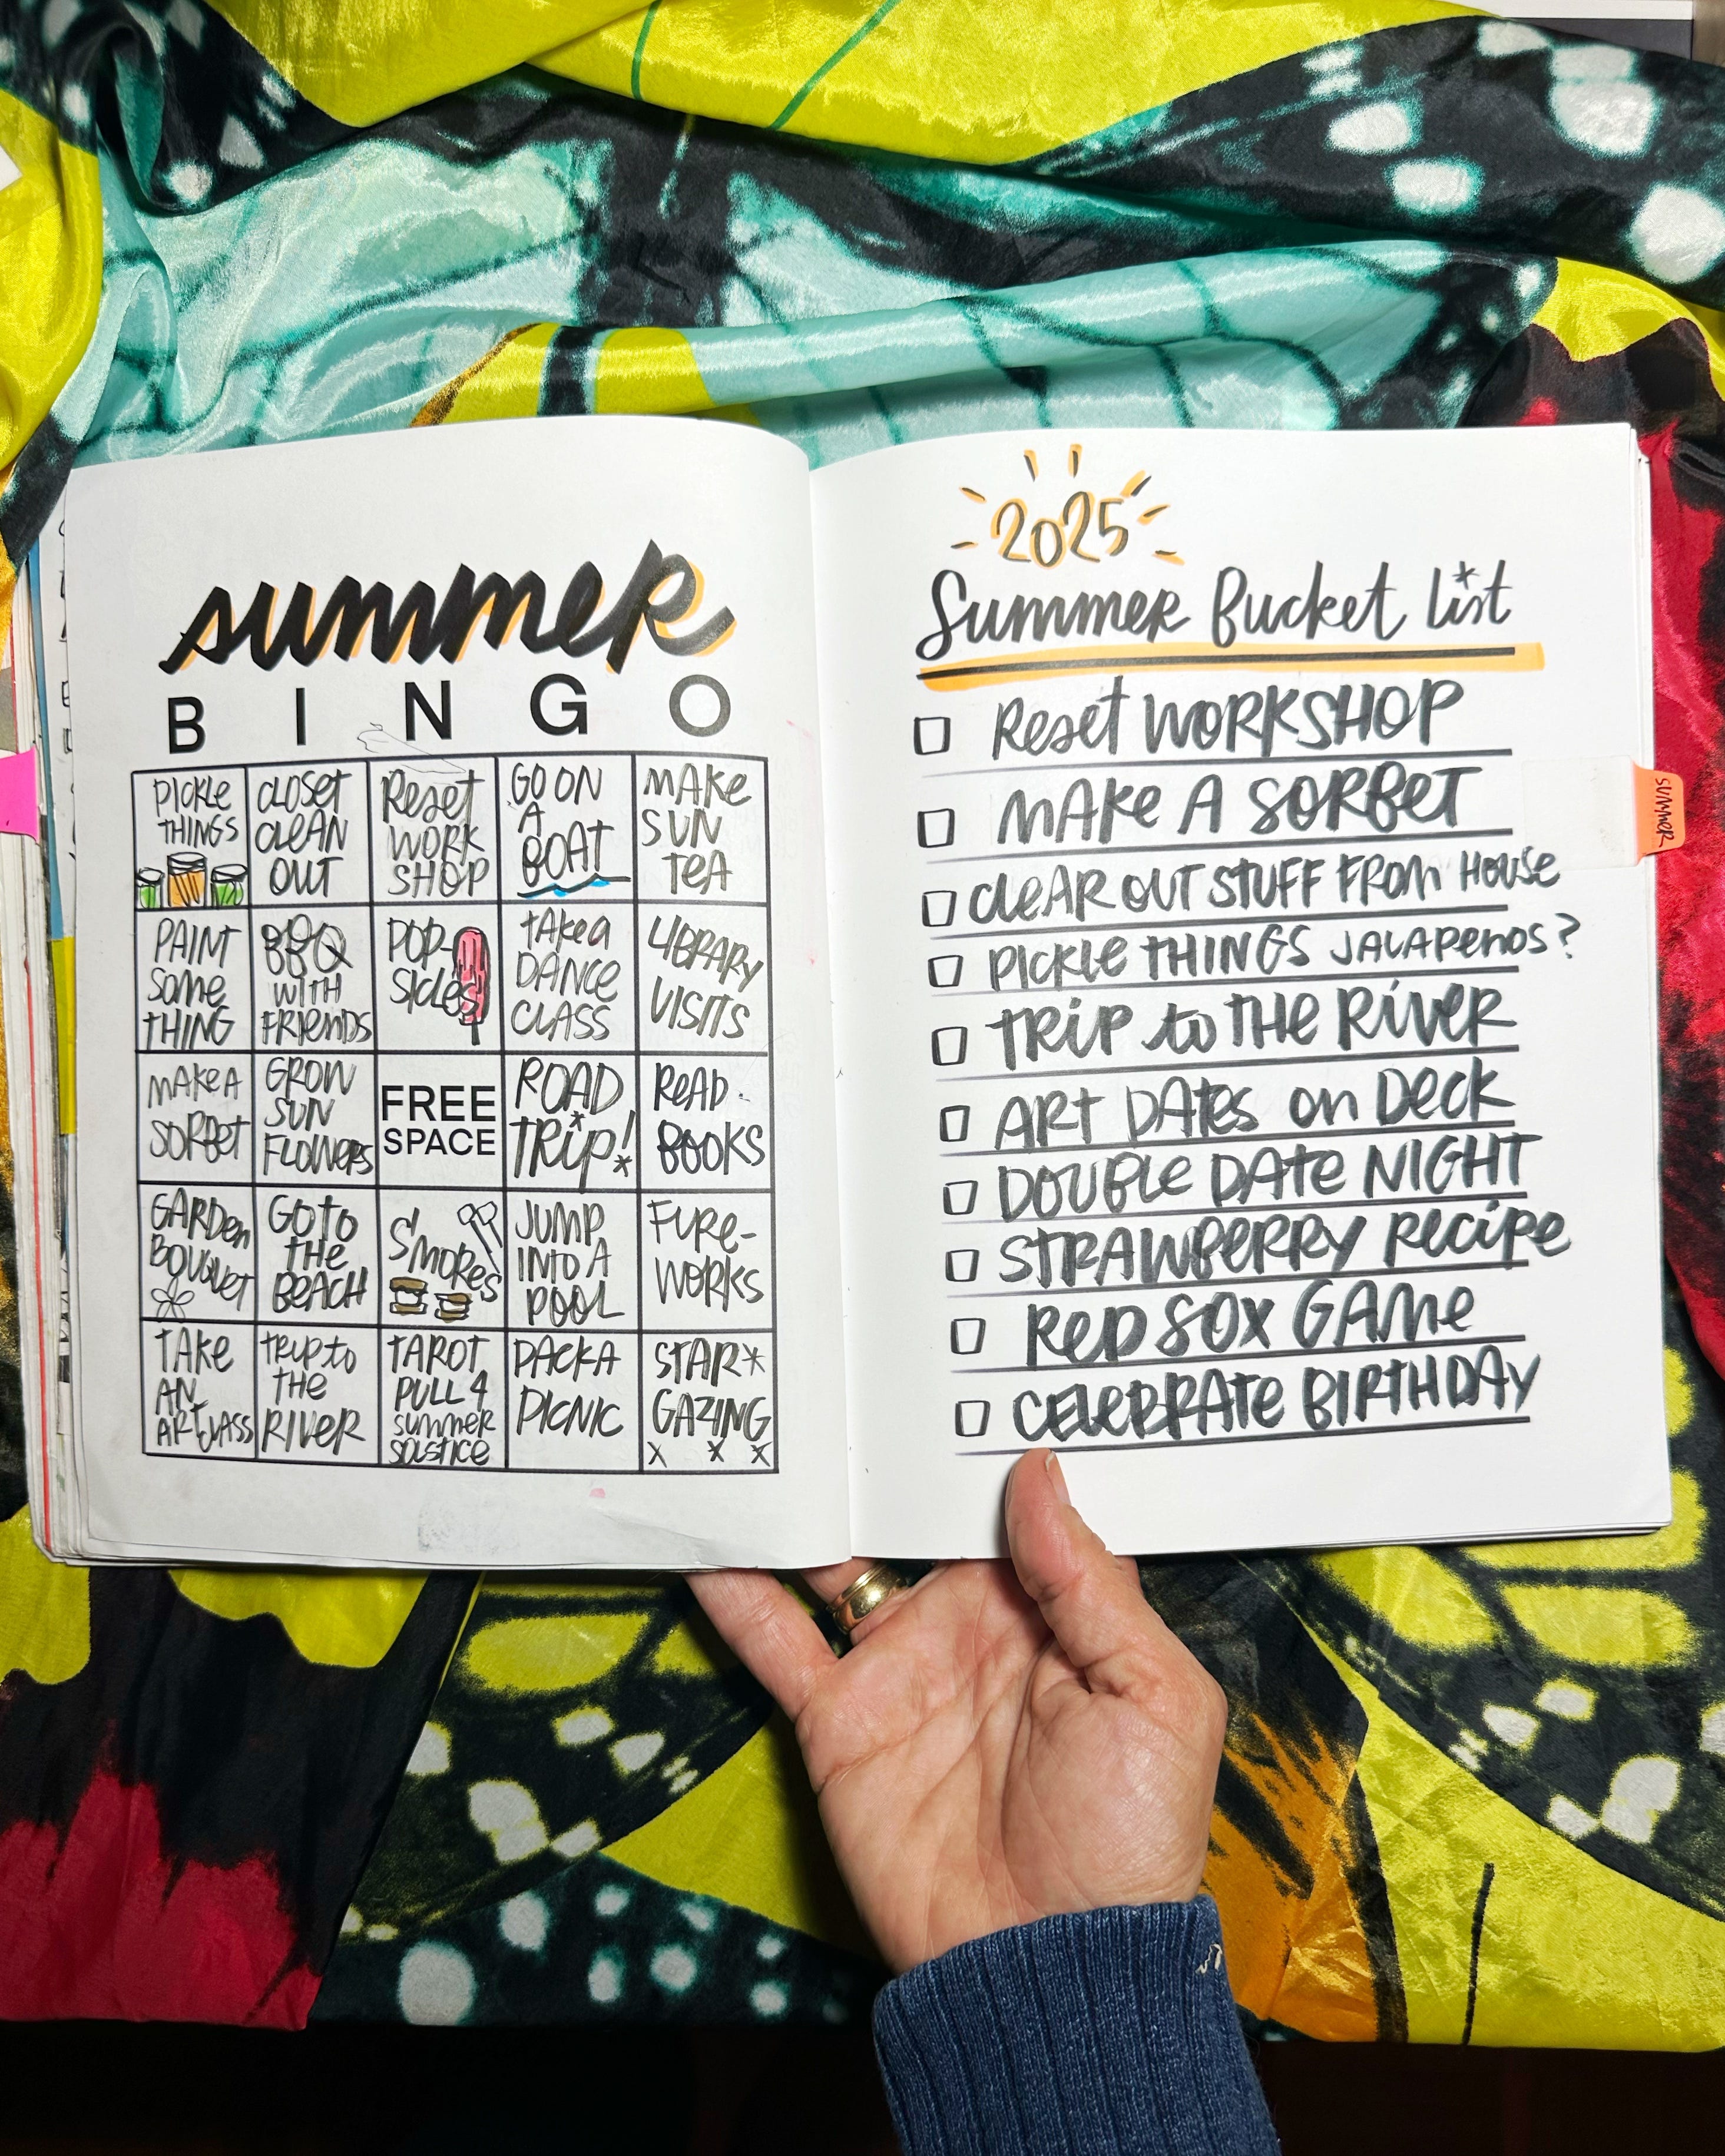 summer
B I N G O
PICKLE
THINGS
CLOSET
CLEAN
OUT
Reset
WORK
SHOP
GO ON
A
BOAT
MAKE
SUN
TEA
PAINT
Some
THING
BBQ
WITH
FRIENDS
POP-
SICLES
TAKE A
DANCE
CLASS
LIBRARY
VISITS
MAKE A
SORBET
GROW
SUN
FLOWERS
FREE
SPACE
ROAD
TRIP!
READ
BOOKS
GARDEN
BOUQUET
GO TO
THE
BEACH
S'MORES
JUMP
INTO A
POOL
FIRE-
WORKS
TAKE
AN
ART CLASS
TRIP to
THE
RIVER
TAROT
PULL 4
summer
solstice
PACK A
PICNIC
STAR*
GAZING
x x x
2025
Summer Bucket List
Reset WORKSHOP
MAKE A SORBET
CLEAR OUT STUFF FROM HOUSE
PICKLE THINGS JALAPENOS?
TRIP to THE RIVER
ART DATES on Deck
DOUBLE DATE NIGHT
STRAWBERRY Recipe
RED SOX GAME
CELEBRATE BIRTHDAY
SUMMER